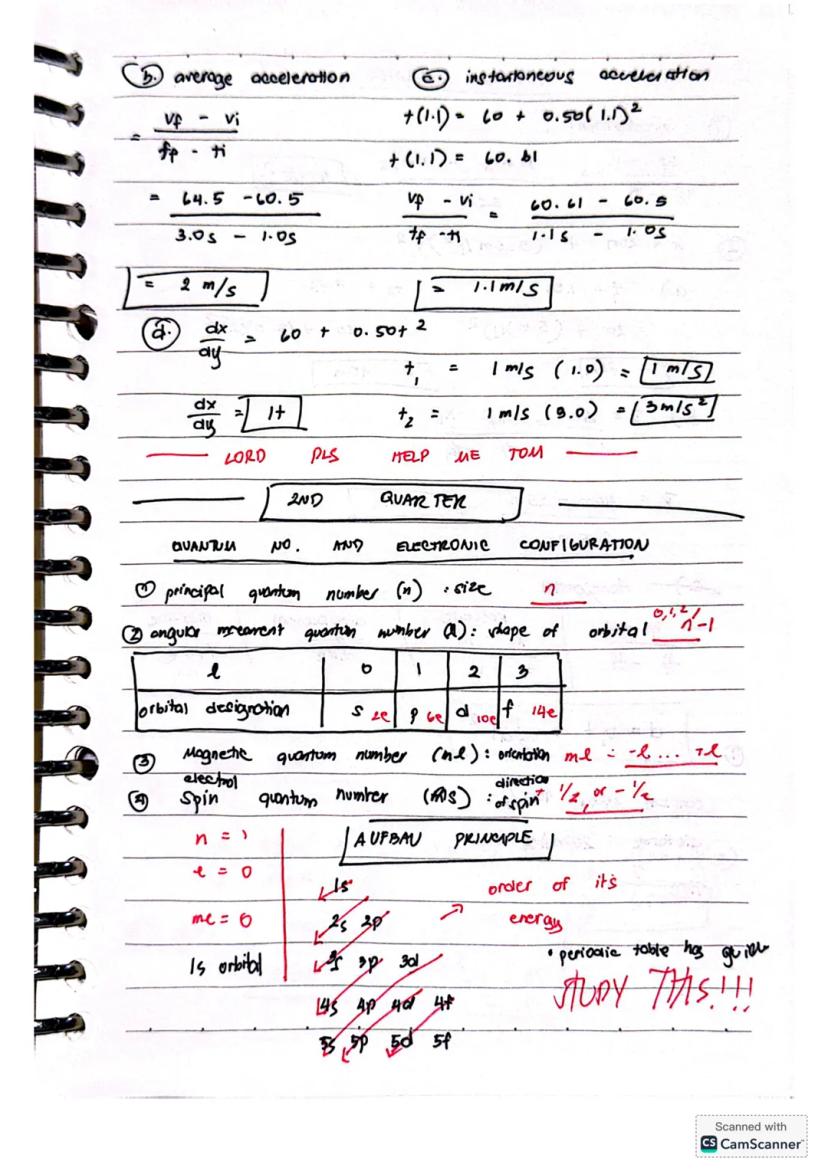 b. average acceleration
= vf - vi / tf - ti
= 64.5 - 60.5 / 3.0s - 1.0s
= 2 m/s
c. instantaneous acceleration
t(1.1) = 60 + 0.50(1.1)²
t(1.1) = 60.61
vf - vi / tf - ti = 60.61 - 60.5 / 1.1s - 1.0s
= 1.1 m/s
d. dx/dy = 60 + 0.50t²
t₁ = 1 m/s (1.0) = 1 m/s
dx/dy = 1t t₂ = 1 m/s (3.0) = 3 m/s²
LORD PLS HELP ME TOM
2ND QUARTER
QUANTUM NO. AND ELECTRONIC CONFIGURATION
① principal quantum number (n) : size n
② angular quantum number (l) : shape of orbital 0,1,2/ n-1
l 0 1 2 3
orbital designation s 2e p 6e d 10e f 14e
③ Magnetic quantum number (ml) : orientation ml = -l ... +l
④ electrol Spin quantum number (ms) : direction of spin + 1/2, or - 1/2
AUFBAU PRINCIPLE
n = 1
l = 0
ml = 0
1s orbital
1s
2s 2p
3s 3p 3d
4s 4p 4d 4f
5s 5p 5d 5f
order of its
energy
• periodic table has guide
STUDY THIS!!!
Scanned with
CS CamScanner